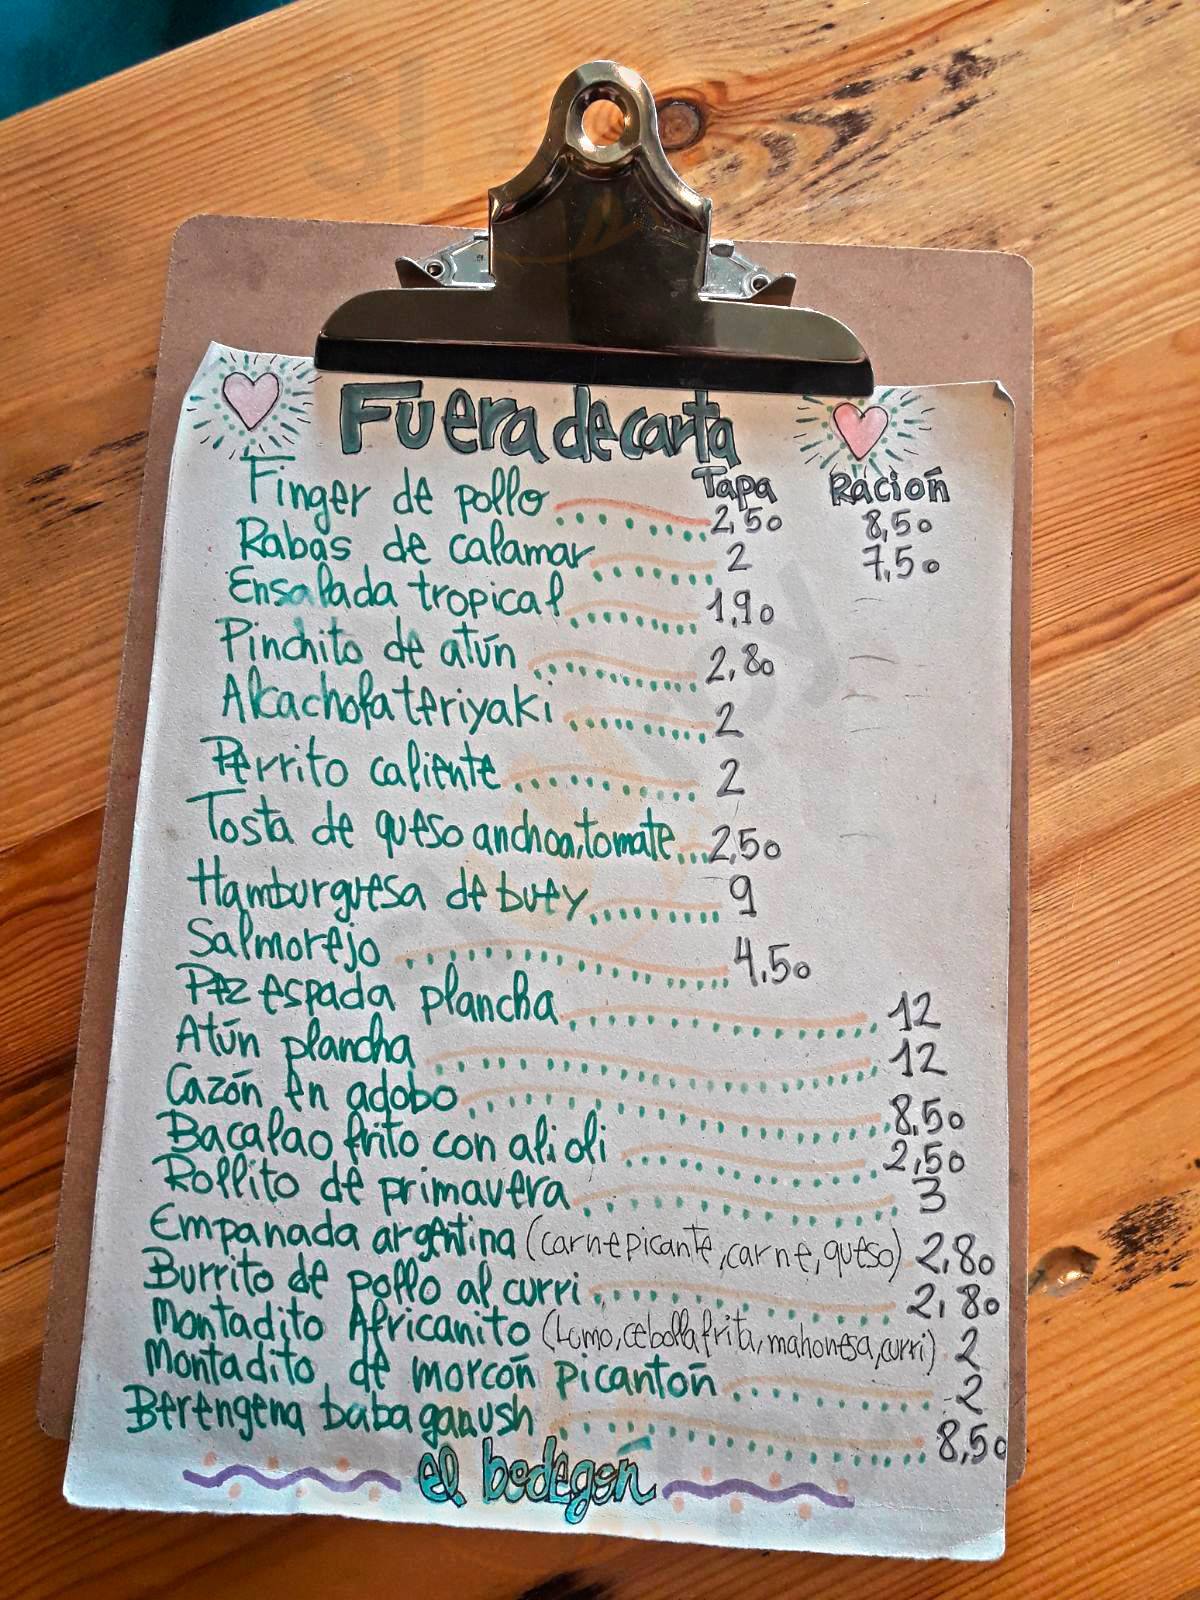 Fuera de carta
Tapa Ración
Finger de pollo 2,50 8,50
Rabas de calamar 2 7,50
Ensalada tropical 1,90
Pinchito de atún 2,80
Alcachofa teriyaki 2
Perrito caliente 2
Tosta de queso anchoa, tomate 2,50
Hamburguesa de buey 9
Salmorejo 4,50
Pez espada plancha 12
Atún plancha 12
Cazón en adobo 8,50
Bacalao frito con ali oli 2,50
Rollito de primavera 3
Empanada argentina (carne picante, carne, queso) 2,80
Burrito de pollo al curri 2,80
Montadito Africanito (Lomo, cebolla frita, mahonesa, curri) 2
Montadito de morcón picantón 2
Berengena baba ganush 8,50
el bodegón